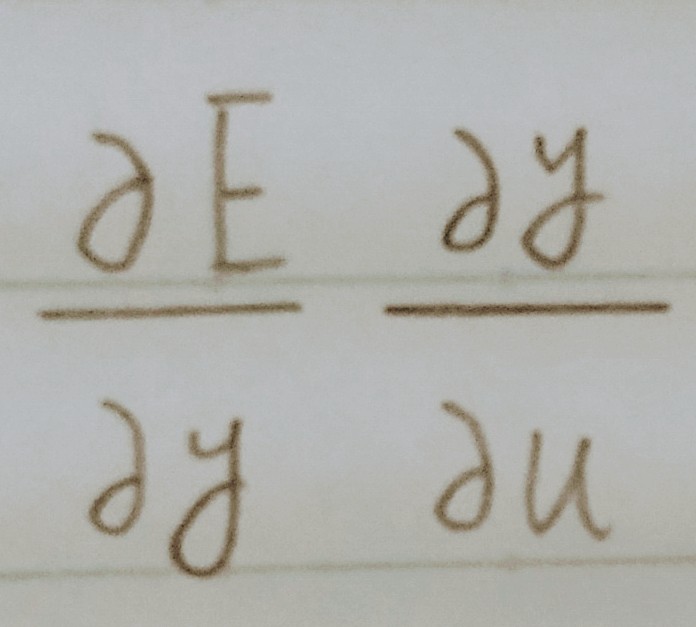 ∂E ∂y
∂y ∂u